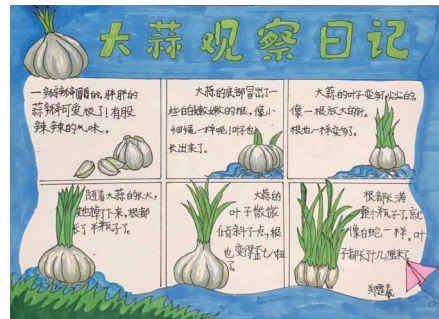 大蒜观察日记
一瓣瓣圆圆的,胖胖的
蒜瓣可爱极了!有股
辣辣的气味。
大蒜的底部冒出了一
些白嫩嫩的根。像小
细绳一样呢!叶子也
长出来了。
大蒜的叶子变多,尖尖的,
像一根放大的针。
根也一样变多了。
随着大蒜的长大,
掉了下来,根都
长了半瓶子了。
大蒜的
叶子微微
倾斜了点,根
也变得歪七扭
了。
根都长满
整个瓶子了,就
像白蛇一样。叶
子都长了十几厘米了